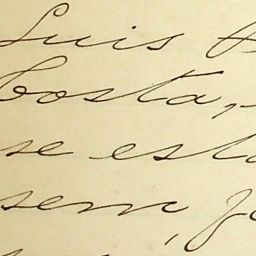 Luis
Costa,
se est
sem, j